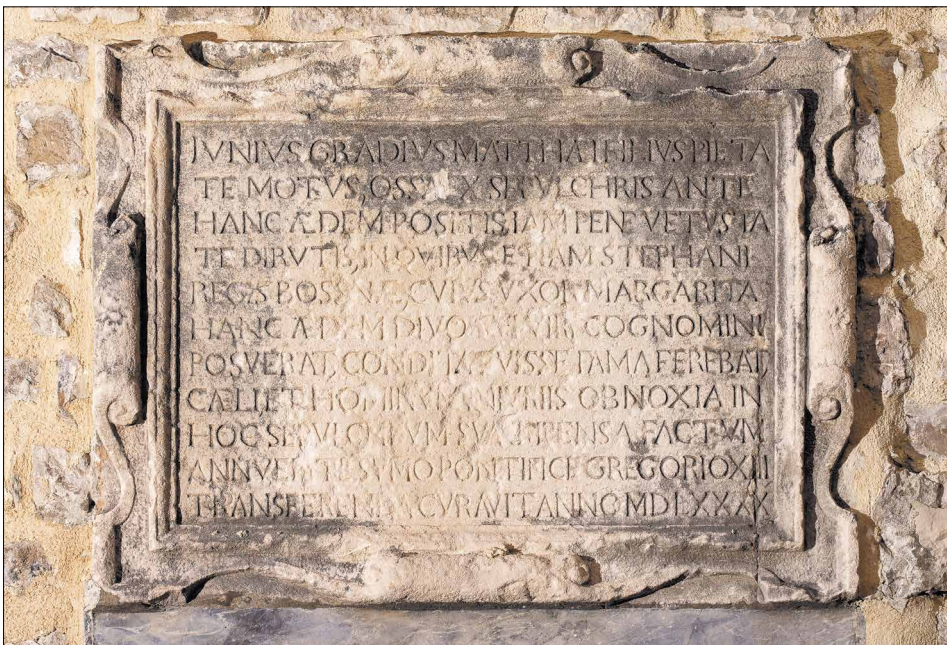 IVNIVS GRADIVS MATTHÆI FILIVS PIETA
TE MOTVS, OSSA EX SEPVLCHRIS ANTE
HANC ÆDEM POSITIS IAM PENE VETVSTA
TE DIRVTIS, IN QVIBVS ETIAM STEPHANI
REGIS BOSSNÆ, CVIVS VXOR MARGARITA
HANC ÆDEM DIVO COGNOMINI
POSVERAT, CONDITA FVISSE FAMA FEREBAT,
CÆLI ET HOMINVM INIVRIIS OBNOXIA IN
HOC SEPVLCHRVM SVA IMPENSA FACTVM
ANNVENTE SVMO PONTIFICE GREGORIO XIII
TRANSFERENDA CVRAVIT ANNO MDLXXXX